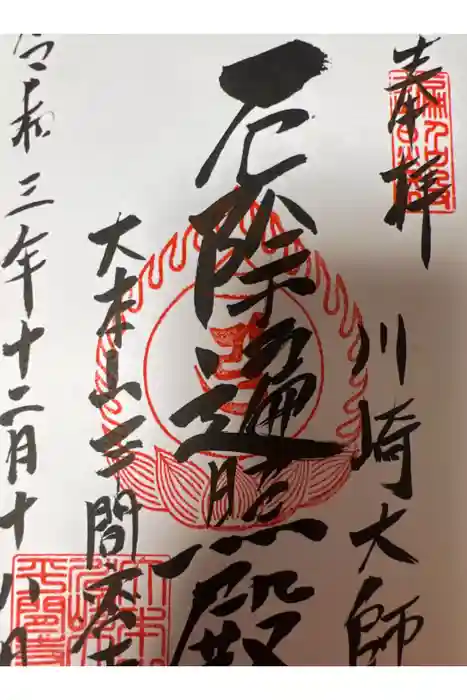 奉拝
川崎大師
厄除遍照殿
大本山平間寺
令和三年十二月十八日